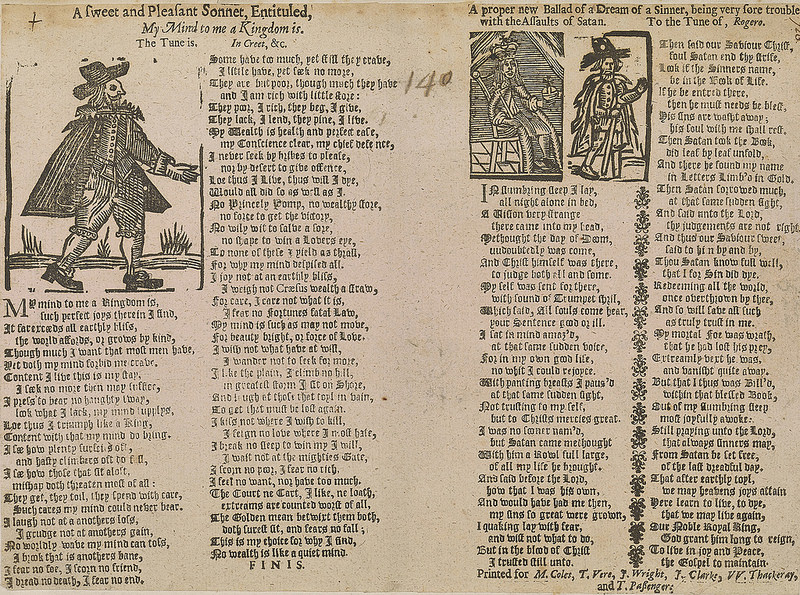 A sweet and Pleasant Sonnet, Entituled,
My Mind to me a Kingdom is.
The Tune is, In Creet, &c.
MY mind to me a Kingdom is,
such perfect joys therein I find,
It far exceeds all earthly bliss,
the world affords, or grows by kind,
Though much I want that most men have,
Yet doth my mind forbid me crave.
Content I live this is my stay,
I seek no more then may suffice,
I press to bear no haughty sway,
look what I lack, my mind supplys,
Loe thus I triumph like a King,
Content with that my mind do bring.
I see how plenty surfets oft,
and hasty climbers oft do fall,
I see how those that sit aloft,
mishap doth threaten most of all:
They get, they toil, they spend with care,
Such cares my mind could never bear.
I laugh not at anothers loss,
I grudge not at anothers gain,
No worldly wave my mind can toss,
I brook that is anothers bane,
I fear no foe, I scorn no friend,
I dread no death, I fear no end.
Some have too much, yet still they crave,
I little have, yet seek no more,
They are but poor, though much they have
and I am rich with little store:
They poor, I rich, they beg, I give,
They lack, I lend, they pine, I live.
My Wealth is health and perfect ease,
my Conscience clear, my chief defence,
I never seek by bribes to please,
nor by desert to give offence,
Loe thus I Live, thus will I dye,
Would all did so as well as I.
No Princely Pomp, no wealthy store,
no force to get the victory,
No wily wit to salve a sore,
no shape to win a Lovers eye,
To none of these I yield as thrall,
For why my mind despised all.
I joy not at an earthly bliss,
I weigh not Cræsus wealth a straw,
For care, I care not what it is,
I fear no Fortunes fatal Law,
My mind is such as may not move,
For beauty bright, or force of Love.
I wish not what have at wist,
I wander not to seek for more,
I like the plain, I climb no hill,
in greatest storm I sit on Shore,
And laugh at those that toyl in vain,
To get that must be lost again.
I kiss not where I wish to kill,
I feign no love where I most hate,
I break no sleep to win my will,
I wait not at the mighties Gate,
I scorn no poor, I fear no rich,
I feel no want, nor have too much.
The Court ne Cart, I like, ne loath,
extreams are counted worst of all,
The Golden mean betwixt them both,
doth surest sit, and fears no fall;
This is my choice for why I find,
No wealth is like a quiet mind.
FINIS.
140
A proper new Ballad of a Dream of a Sinner, being very sore trouble
with the Assaults of Satan. To the Tune of, Rogero.
IN slumbring sleep I lay,
all night alone in bed,
A Vision very strange
there came into my head,
Methought the day of Doom,
undoubtedly was come,
And Christ himself was there,
to judge both all and some.
My self was sent for there,
with sound of Trumpet shril,
Which said, All souls come hear,
your Sentence good or ill.
I sat in mind amaz'd,
at that same sudden voice,
For in my own good life,
no whit I could rejoyce.
With panting breasts I paus'd
at that same sudden sight,
Not trusting to my self,
but to Christs mercies great.
I was no sooner nam'd,
but Satan came methought
With him a Rowl full large,
of all my life he brought.
And said before the Lord,
how that I was his own,
And would have had me then,
my sins so great were grown,
I quaking lay with fear,
and wist not what to do,
But in the blood of Christ
I trusted still unto.
Then said our Saviour Christ,
soul Satan end thy strife,
Look if the Sinners name,
be in the Book of Life.
If he be entred there,
then he must needs be blest,
His sins are washt away;
his soul with me shall rest.
Then Satan took the Book,
did leaf by leaf unfold,
And there he found my name
in Letters Limb'd in Gold.
Then Satan sorrowed much,
at that same sudden sight,
And said unto the Lord,
thy judgements are not right.
And thus our Saviour sweet,
said to him by and by,
Thou Satan know full well,
that I for Sin did dye.
Redeeming all the world,
once overthrown by thee,
And so will save all such
as truly trust in me.
My mortal Foe was wrath,
that he had lost his prey,
Extreamly vext he was,
and vanisht quite away.
But that I thus was Bill'd,
within that blessed Book,
Out of my slumbring sleep
most joyfully awoke.
Still praying unto the Lord,
that always sinners may,
From Satan be set free,
of the last dreadful day.
That after earthly toyl,
we may heavens joys attain
Here learn to live, to dye,
that we may live again,
Our Noble Royal King,
God grant him long to reign,
To live in joy and Peace,
the Gospel to maintain.
Printed for M. Coles, T. Vere, J. Wright, J. Clarke, W. Thackeray,
and T. Passenger.